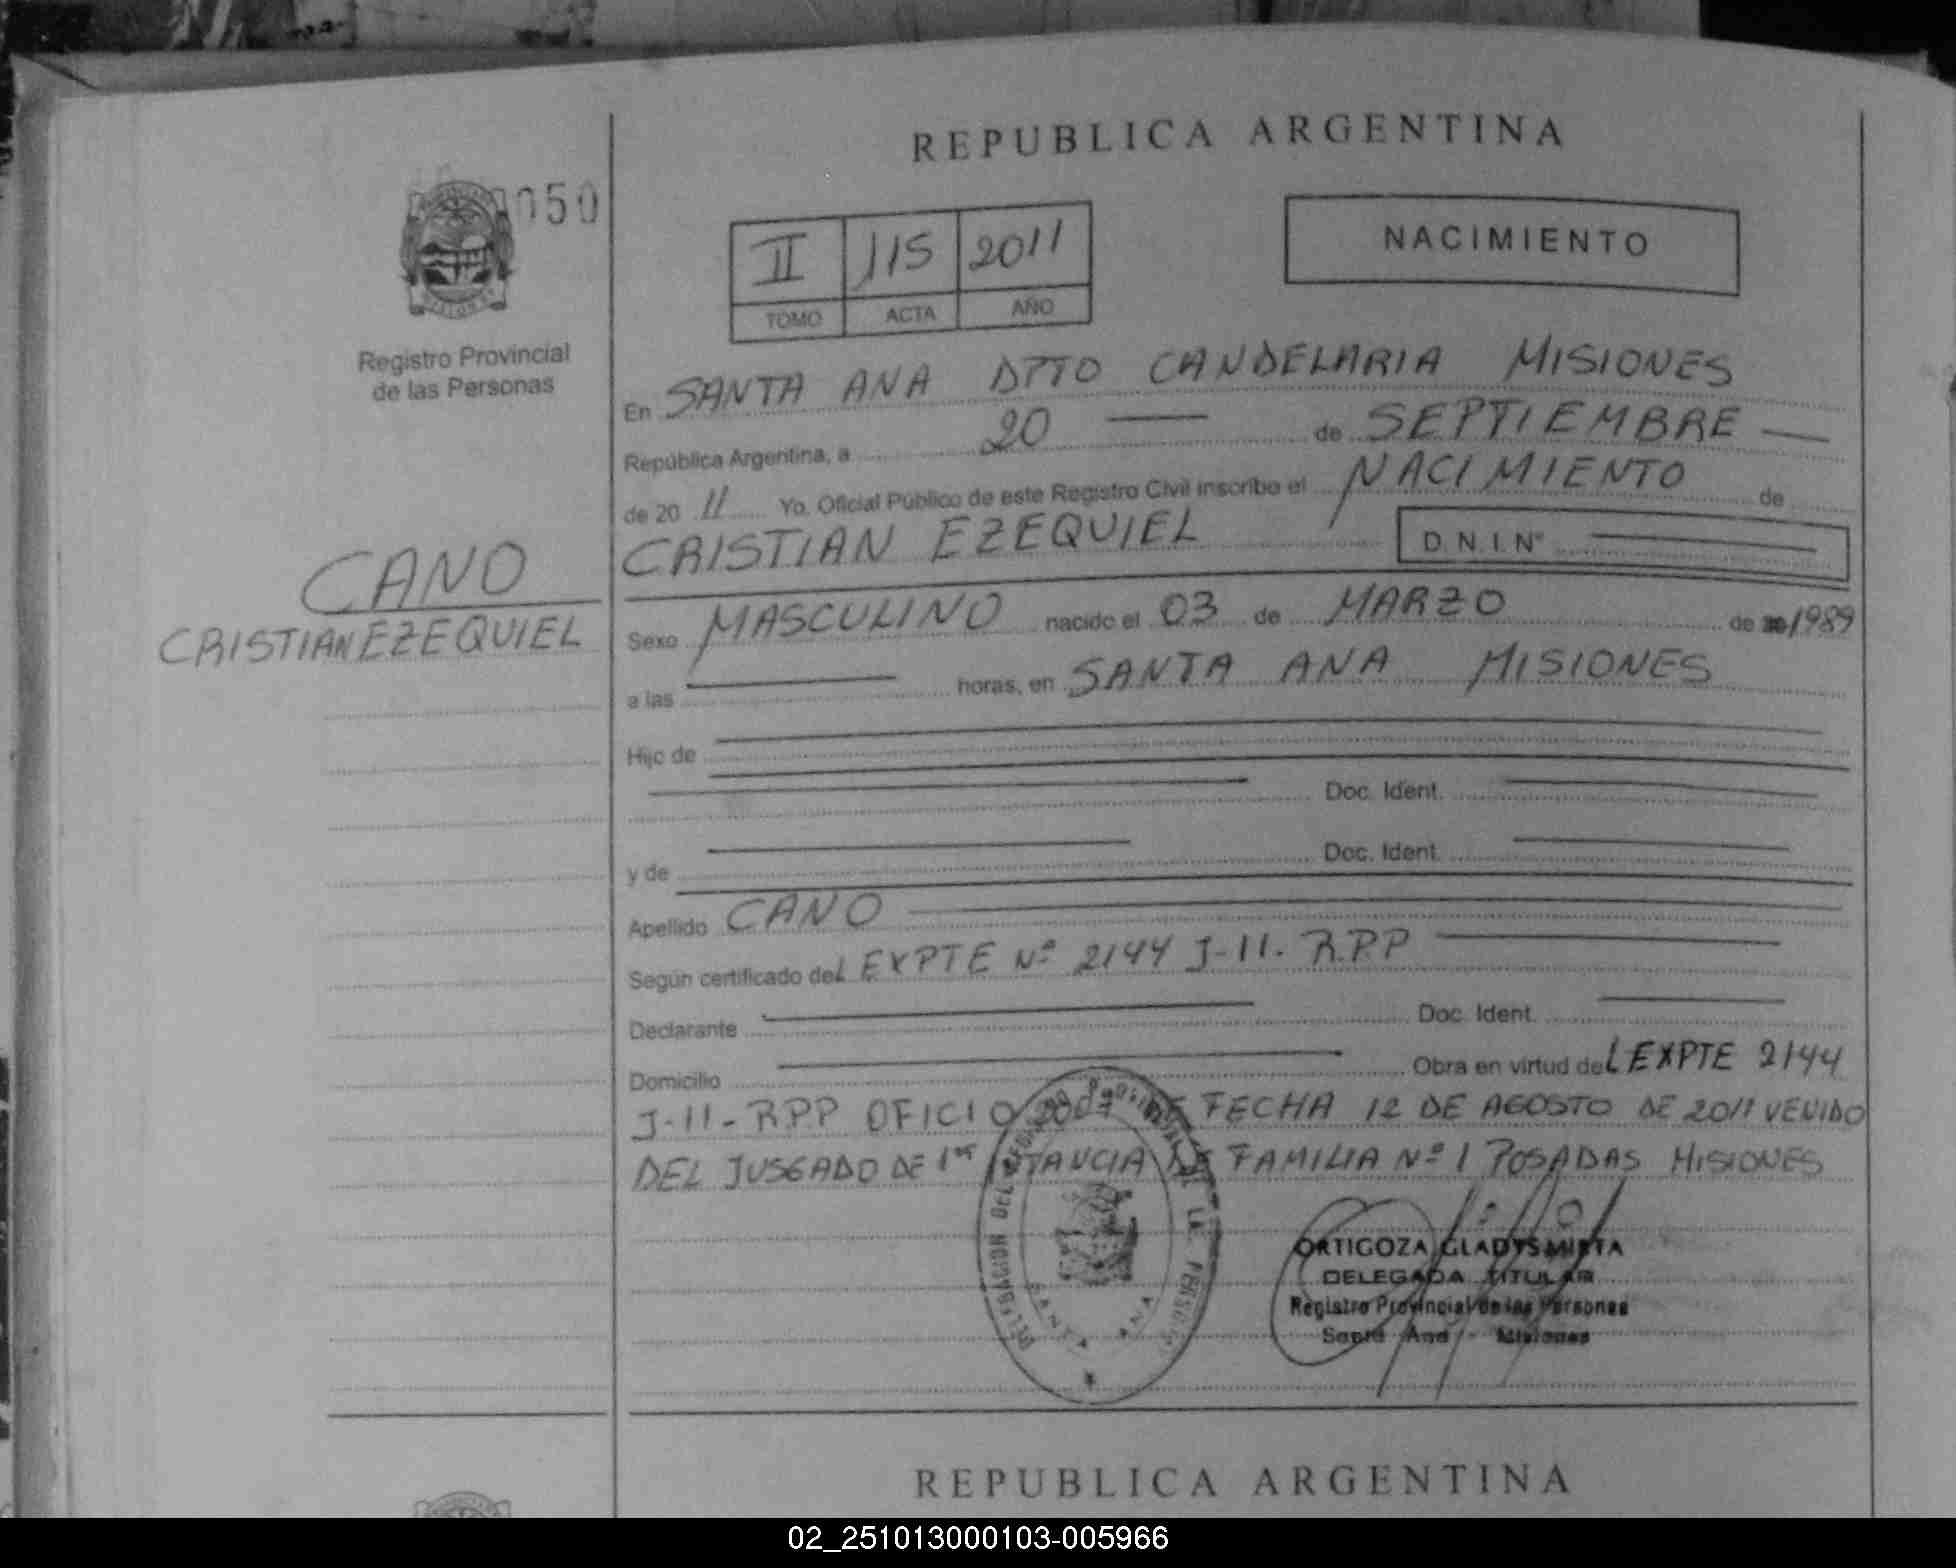 REPUBLICA ARGENTINA
050
II 115 2011
TOMO ACTA AÑO
NACIMIENTO
Registro Provincial
de las Personas
En SANTA ANA DPTO CANDELARIA MISIONES
República Argentina, a 20 de SEPTIEMBRE
de 20 11 Yo, Oficial Público de este Registro Civil inscribo el NACIMIENTO de
CRISTIAN EZEQUIEL D.N.I. N°
CANO
CRISTIAN EZEQUIEL
Sexo MASCULINO nacido el 03 de MARZO de 1989
a las horas, en SANTA ANA MISIONES
Hijo de
Doc. Ident.
y de Doc. Ident.
Apellido CANO
Según certificado del EXPTE Nº 2144 J-11. R.P.P
Declarante Doc. Ident.
Domicilio Obra en virtud del EXPTE 2144
J-11-R.P.P OFICIO FECHA 12 DE AGOSTO DE 2011 VENIDO
DEL JUSGADO DE 1ra FAMILIA Nº 1 POSADAS MISIONES
DELEGACION DEL LA
SANTA ANA
ORTIGOZA GLADYS MIRTA
DELEGADA TITULAR
Registro Provincial de las Personas
Santa Ana - Misiones
REPUBLICA ARGENTINA
02_251013000103-005966